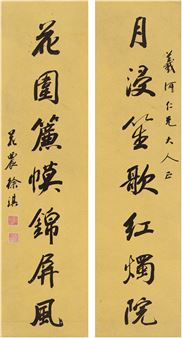 羲阿仁兄大人正
月浸笙歌紅燭院
花圍簾幙錦屏風
徐淇